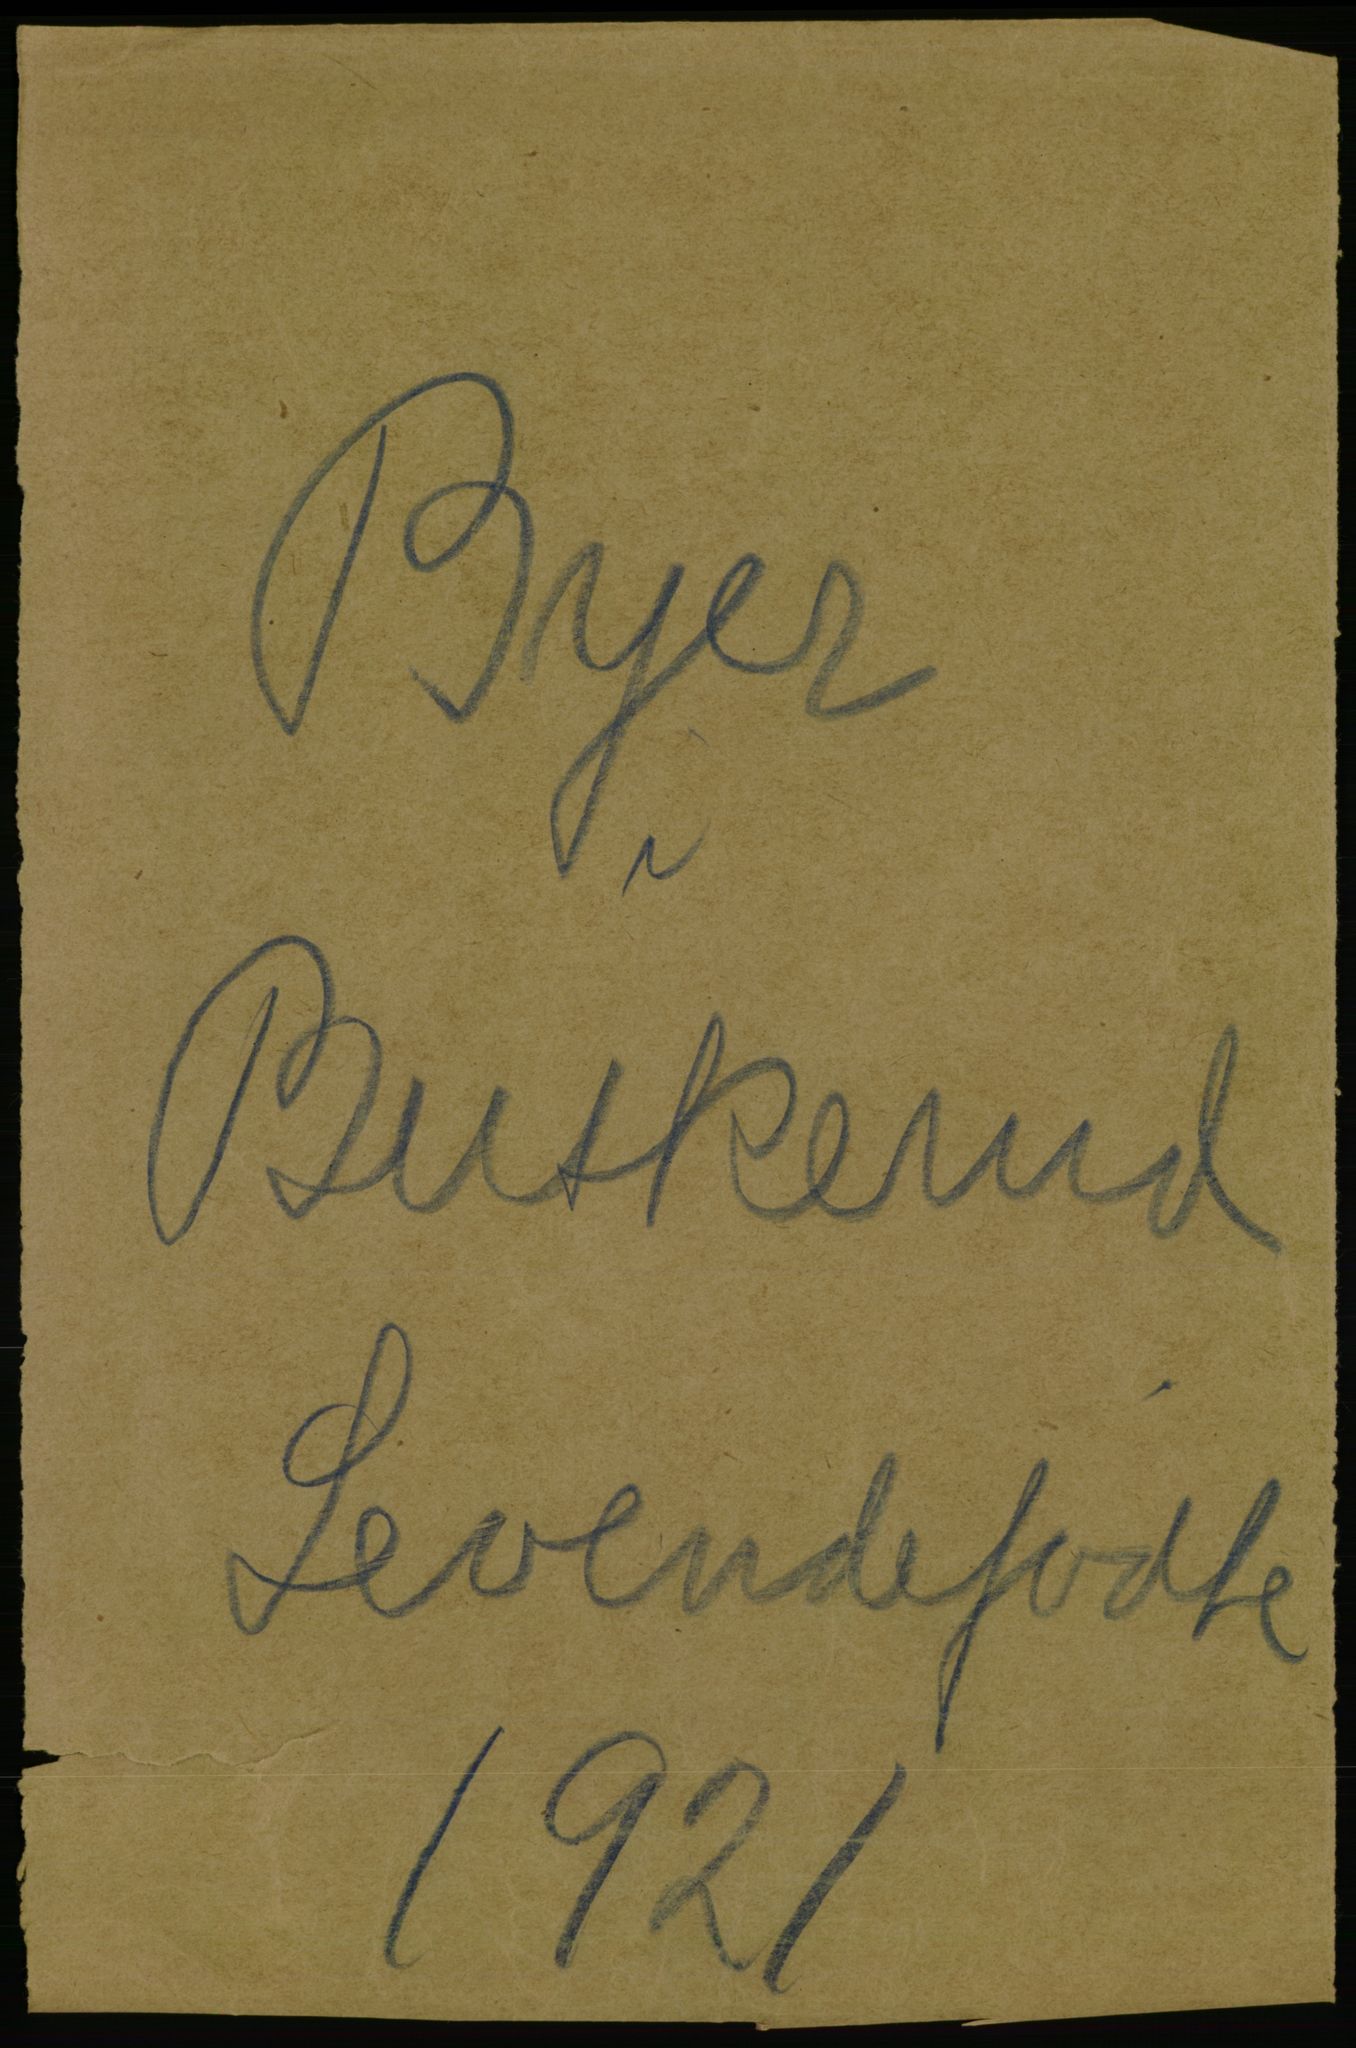 Byer
i
Buskerud
Levendefødte
1921